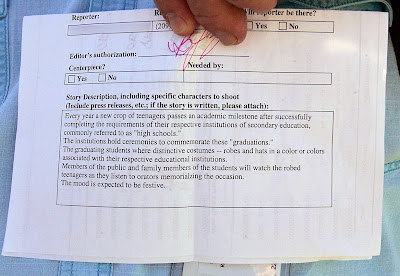 Reporter:
Will reporter be there?
(209
Yes No
Editor's authorization:
Centerpiece? Needed by:
Yes No
Story Description, including specific characters to shoot
(Include press releases, etc.; if the story is written, please attach):
Every year a new crop of teenagers passes an academic milestone after successfully
completing the requirements of their respective institutions of secondary education,
commonly referred to as "high schools."
The institutions hold ceremonies to commemorate these "graduations."
The graduating students where distinctive costumes -- robes and hats in a color or colors
associated with their respective educational institutions.
Members of the public and family members of the students will watch the robed
teenagers as they listen to orators memorializing the occasion.
The mood is expected to be festive.